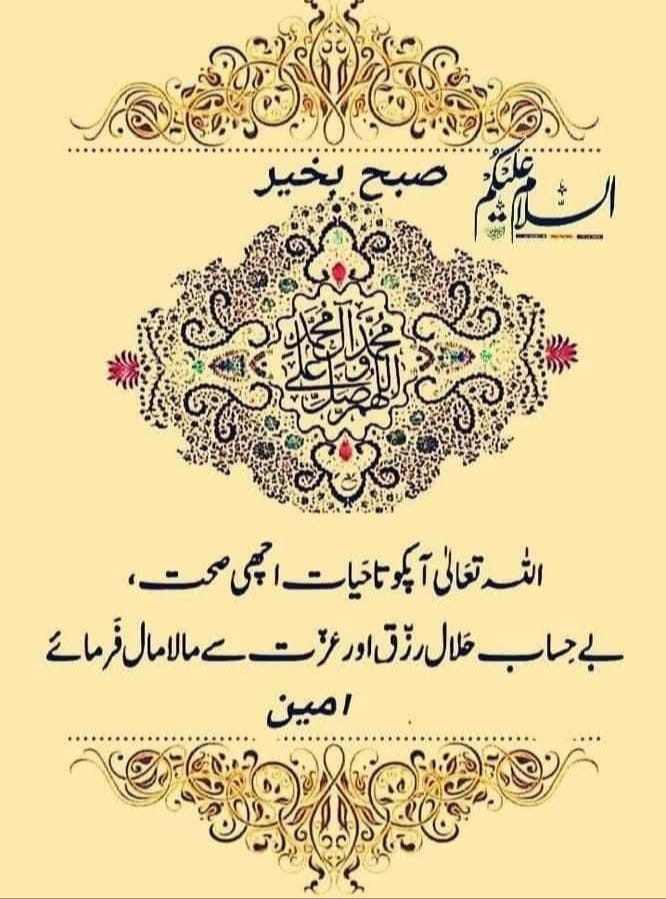 السلام علیکم
صبح بخیر
اللهم صل علی محمد و آل محمد
اللہ تعَالیٰ آپکو تاحَیات اچھی صحت،
بے حِساب حَلال رزّق اور عزّت سے مالا مال فَرمائے
امین